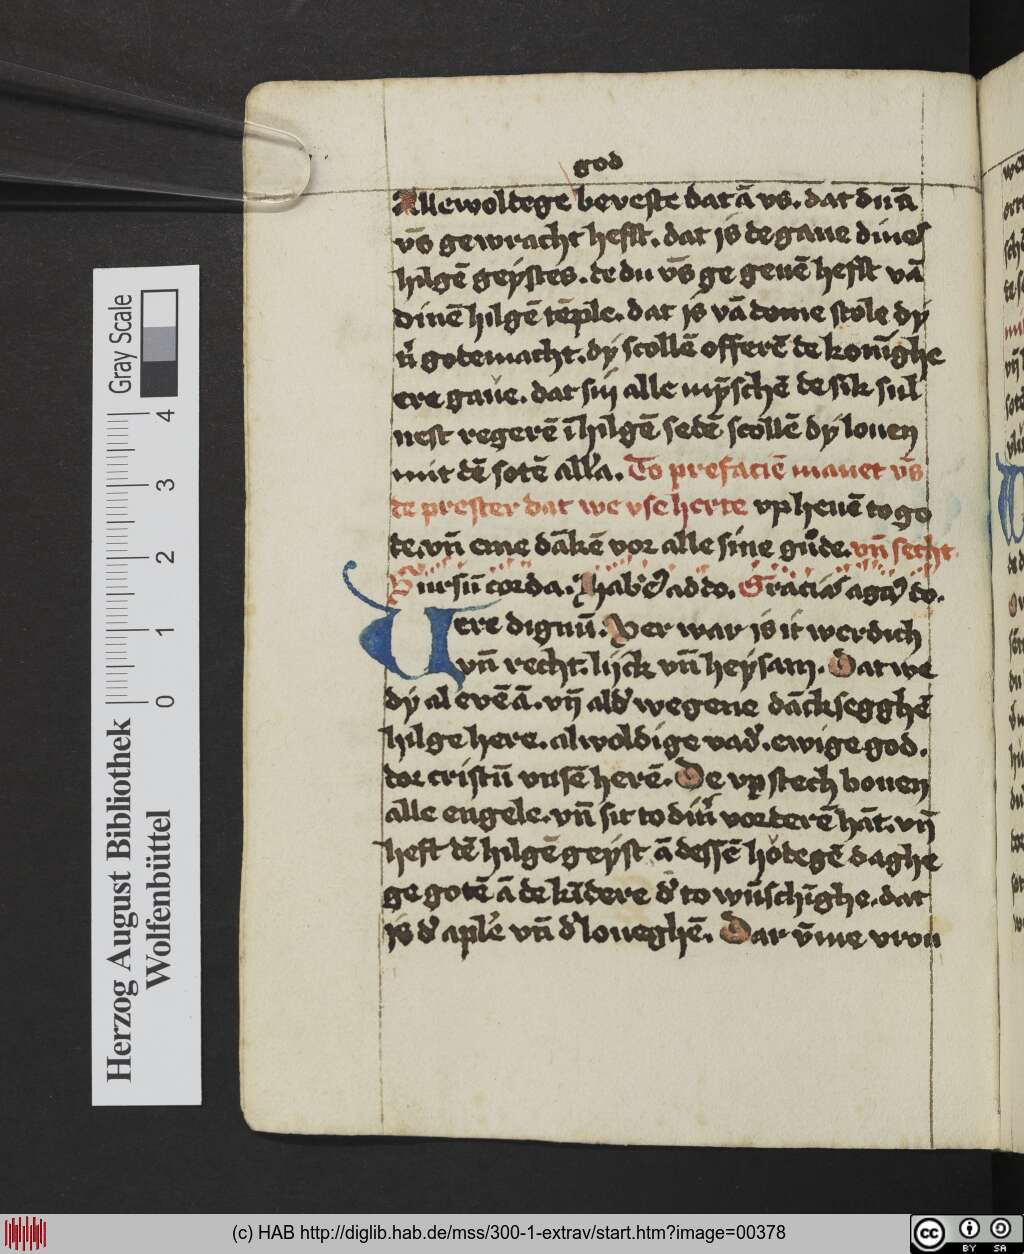 god
Allewoldege beveste dat ā vs. dat du ā
vs̄ gewracht hefft. dat is de gaue dines
hilgē geystes. de du vs̄ ge geuē hefft vā
dinē hilgē tēple. dat is vā dome stole dy
gotemacht. dy scollē offerē de konīghe
ere gaue. dat sin alle myschē de sik sul
uest regerē ī hilgē sedē scollē dy louen
mit dē sotē all'a. To prefaciē manet vs̄
de prester dat we vse herte vp heuē to go
de. vn̄ eme dākē vor alle sine gude. vn̄ secht
Sursū corda. hab' ad do. Gracias agā do.
Vere dignū. Ver war is it werdich
vn̄ recht. lijck vn̄ heysam. Dat we
dy al evē ā. vn̄ ald' wegene dāck segghē
hilge here. alwoldige vad'. ewige god.
dor cristū vnsē herē. De vp stech bouen
alle engele. vn̄ sit to dīn' vorderē hāt. vn̄
heft dē hilgē geyst ā dessē hodegē daghe
ge gotē ā de kīdere d' to wūschīghe. dat
is d' aplē vn̄ d' loueghē. Dar vme vrou
Herzog August Bibliothek
Wolfenbüttel
Gray Scale
0 1 2 3 4
(c) HAB http://diglib.hab.de/mss/300-1-extrav/start.htm?image=00378
cc BY SA